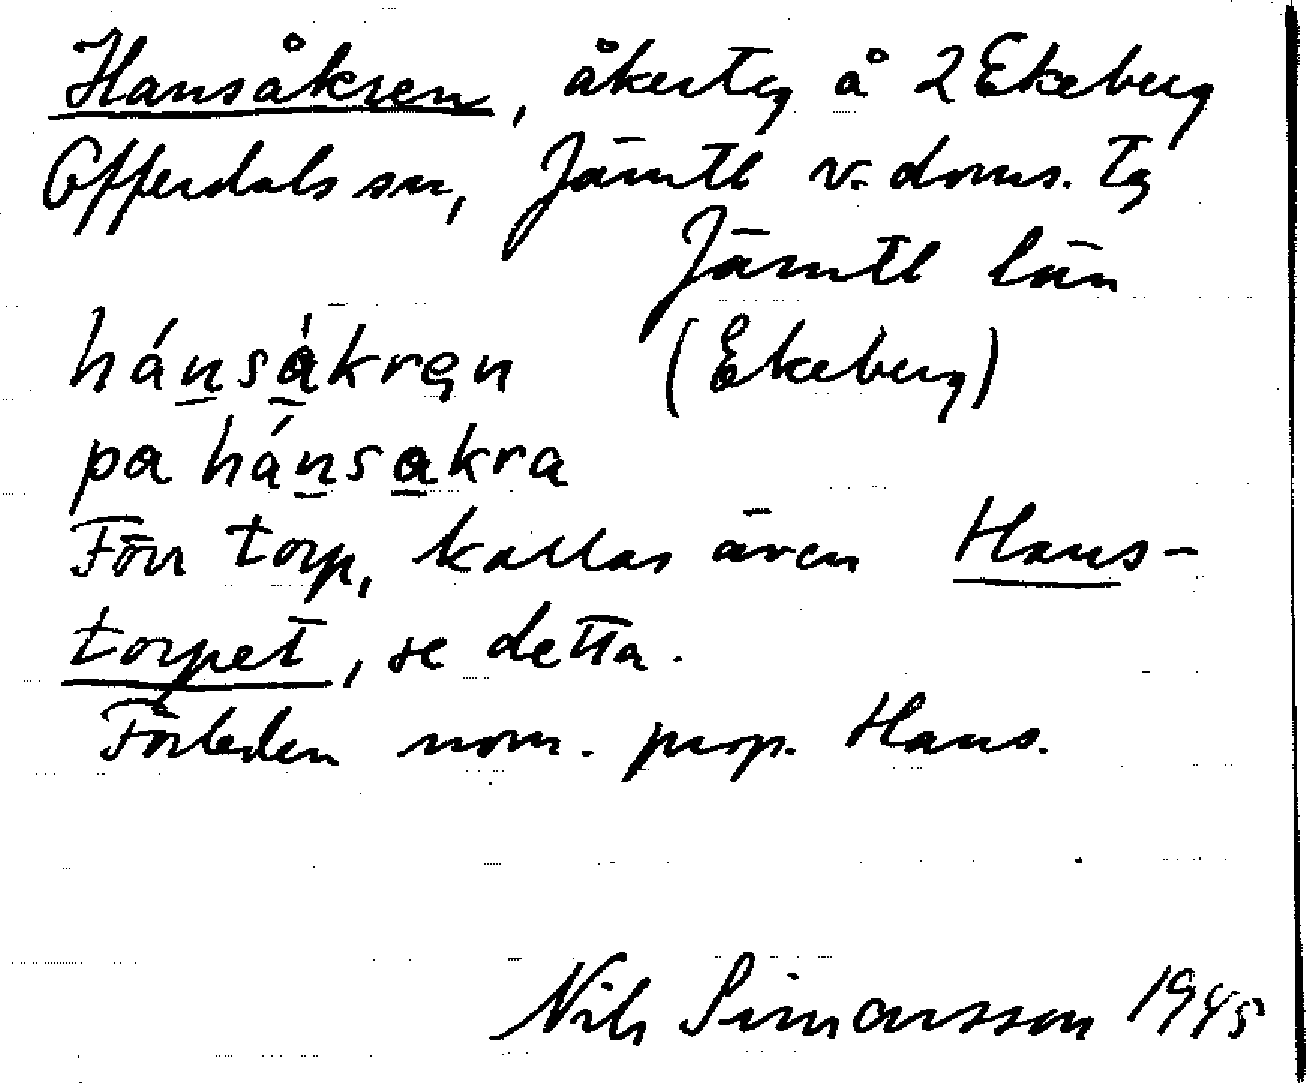 Hansåkren, åkerteg å 2 Ekeberg
Offerdals sn, Jämtl v. doms. tg
Jämtl län
hánsåkren (Ekeberg)
pa hánsakra
Förr torp, kallas även Hans-
torpet, se detta.
Förleden nom. prop. Hans.
Nils Simonsson 1945